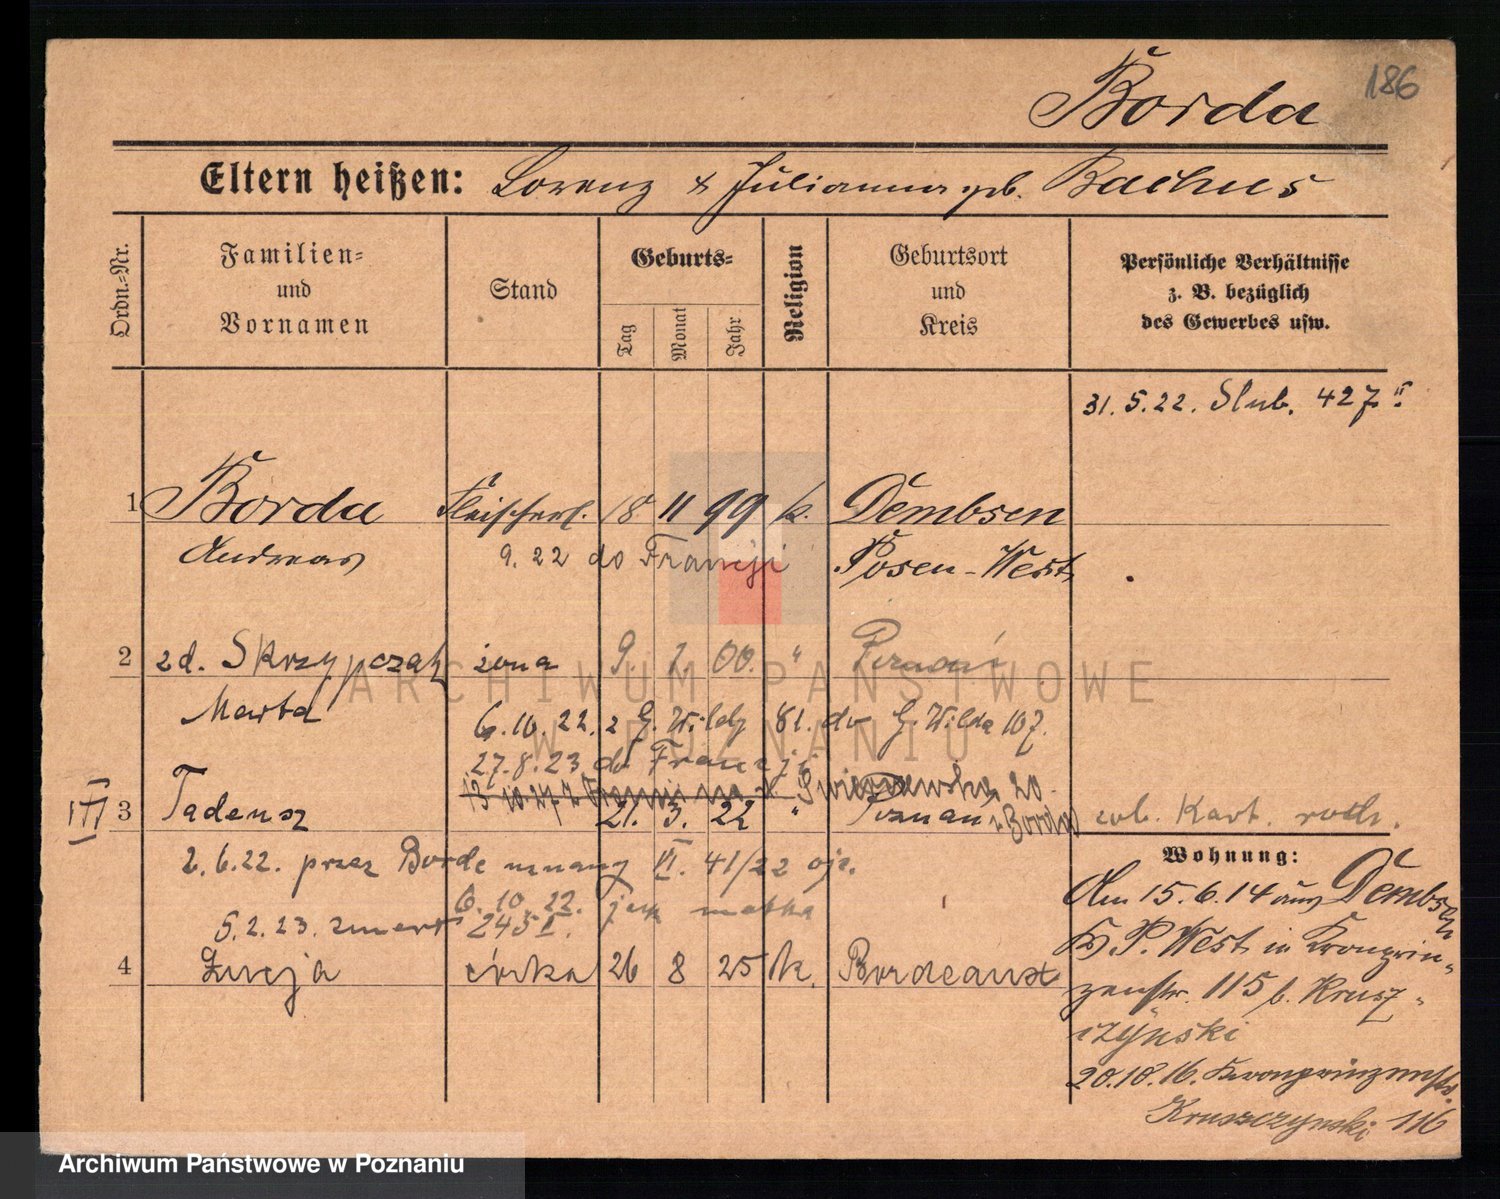 186
Borda
Eltern heißen: Lorenz & Julianna geb. Bachus
Ordn.-Nr.
Familien- und Vornamen
Stand
Geburts-
Tag
Monat
Jahr
Religion
Geburtsort und Kreis
Persönliche Verhältnisse z. B. bezüglich des Gewerbes usw.
31. 5. 22. Slub. 427 II
1 Borda Fleischerl. 18 11 99 k. Dembsen
Andreas 9. 22 do Francji Posen-West
2 zd. Skrzypczak żona 9. 7. 00. " Poznań
Marta 6. 10. 22. z G. Wildy 81. do G. Wilda 107.
27. 8. 23 do Francji
III 3 Tadeusz 21. 3. 22 " Poznań
2. 6. 22. przez Borde uznany VI. 41/22
6. 10. 22. jak matka
5. 2. 23. zmarł 245 I.
4 Lucja córka 26 8 25 k. Bordeaux
Wohnung:
Am 15. 6. 14 aus Dembsen
Kr. P. West in Kronprin-
zenstr. 115 b. Krusz-
czynski
20. 10. 16. Kronprinzenstr.
Kruszczynski 116
ARCHIWUM PAŃSTWOWE
W POZNANIU
Archiwum Państwowe w Poznaniu